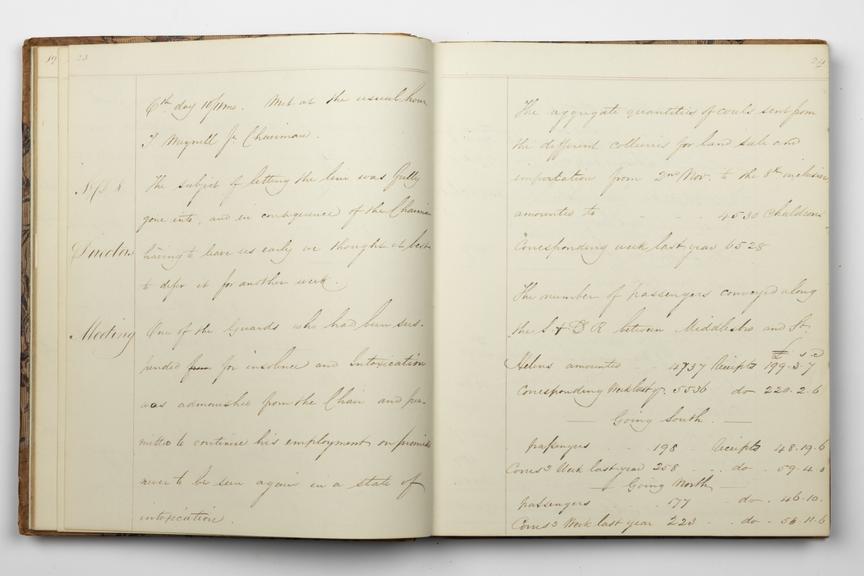 23
6th day 10/11mo. Met at the usual hour
T Meynell Jr Chairman.
The subject of letting the line was fully
gone into, and in consequence of the Chairman
Directors
having to leave us early we thought it best
to defer it for another week.
Meeting
One of the Guards who had been sus-
pended from for insolence and Intoxication
was admonished from the Chair and per-
mitted to continue his employment on promise
never to be seen again in a state of
intoxication.
24
The aggregate quantities of coals sent from
the different collieries for land sale and
exportation from 2nd Nov. to the 8th inclusive
amounted to 4530 Chaldrons
Corresponding week last year 6528
The number of passengers conveyed along
the S & D R between Middlesbro and St.
£ s d
Helens amounted 4737 Receipts 199.3.7
Corresponding Week last yr. 5536 do 220.2.6
Going South.
passengers 198 Receipts 48.19.6
Corres Week last year 258 do 59.4.
Going North
passengers 177 do 46.10.
Corres Week last year 223 do 56.11.6